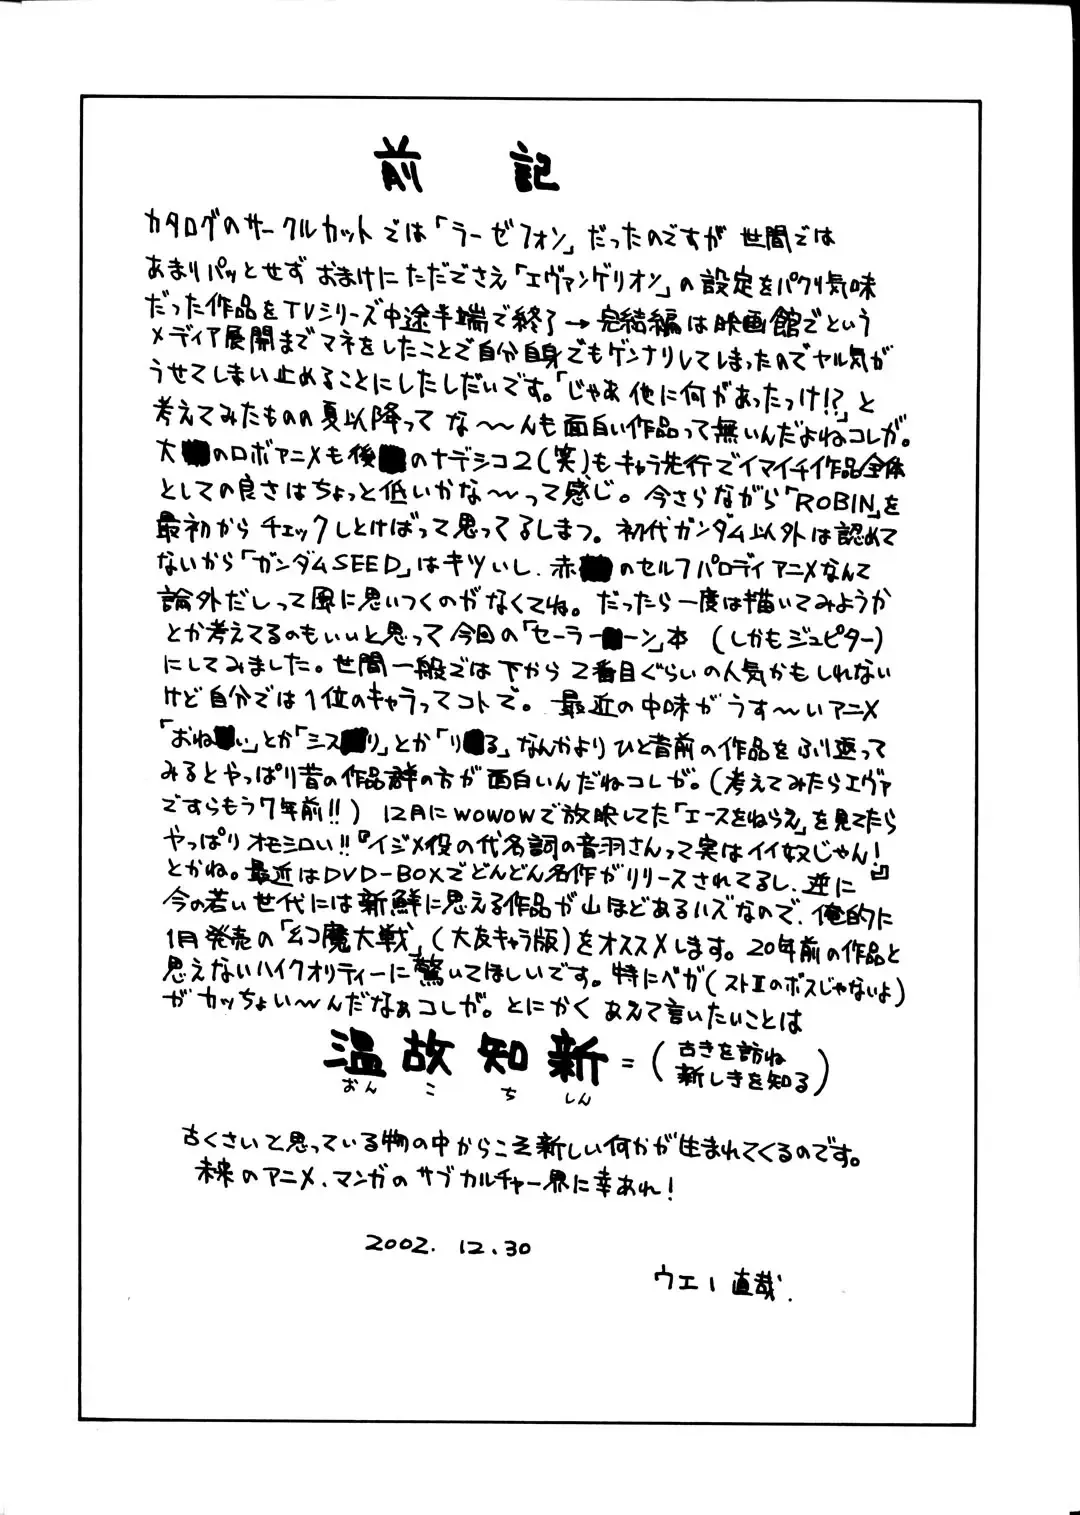 前記
カタログのサークルカットでは「ラーゼフォン」だったのですが世間では
あまりパッとせずおまけにただでさえ「エヴァンゲリオン」の設定をパクり気味
だった作品をTVシリーズ中途半端で終了→完結編は映画館でという
メディア展開までマネをしたことで自分自身でもゲンナリしてしまったのでヤル気が
うせてしまい止めることにしたしだいです。「じゃあ他に何があったっけ!?」と
考えてみたものの夏以降ってな〜〜んも面白い作品って無いんだよねコレが。
大 のロボアニメも後 のナデシコ2(笑)もキャラ先行でイマイチ作品全体
としての良さはちょっと低いかな〜〜って感じ。今さらながら「ROBIN」を
最初からチェックしとけばって思ってるしまつ。初代ガンダム以外は認めて
ないから「ガンダムSEED」はキツいし、赤 のセルフパロディアニメなんて
論外だしって風に思いつくのがなくてね。だったら一度は描いてみようか
とか考えてるのもいいと思って今回の「セーラー ーン」本 (しかもジュピター)
にしてみました。世間一般では下から2番目ぐらいの人気かもしれない
けど自分では1位のキャラってコトで。最近の中味がうす〜〜いアニメ
「おね い」とか「シス り」とか「り る」なんかよりひと昔前の作品をふり返って
みるとやっぱり昔の作品群の方が面白いんだねコレが。(考えてみたらエヴァ
ですらもう7年前!!) 12月にWOWOWで放映してた「エースをねらえ」を見てたら
やっぱりオモシロい!!『イジメ役の代名詞の音羽さんって実はイイ奴じゃん!』
とかね。最近はDVD-BOXでどんどん名作がリリースされてるし、逆に
今の若い世代には新鮮に思える作品が山ほどあるハズなので、俺的に
1月発売の「幻魔大戦」(大友キャラ版)をオススメします。20年前の作品と
思えないハイクオリティーに驚いてほしいです。特にベガ(ストIIのボスじゃないよ)
がカッちょい〜〜んだなぁコレが。とにかくあえて言いたいことは
温故知新=(古きを訪ね
新しきを知る)
おんこちしん
古くさいと思っている物の中からこそ新しい何かが生まれてくるのです。
未来のアニメ、マンガのサブカルチャー界に幸あれ!
2002. 12.30
ウエー直哉.